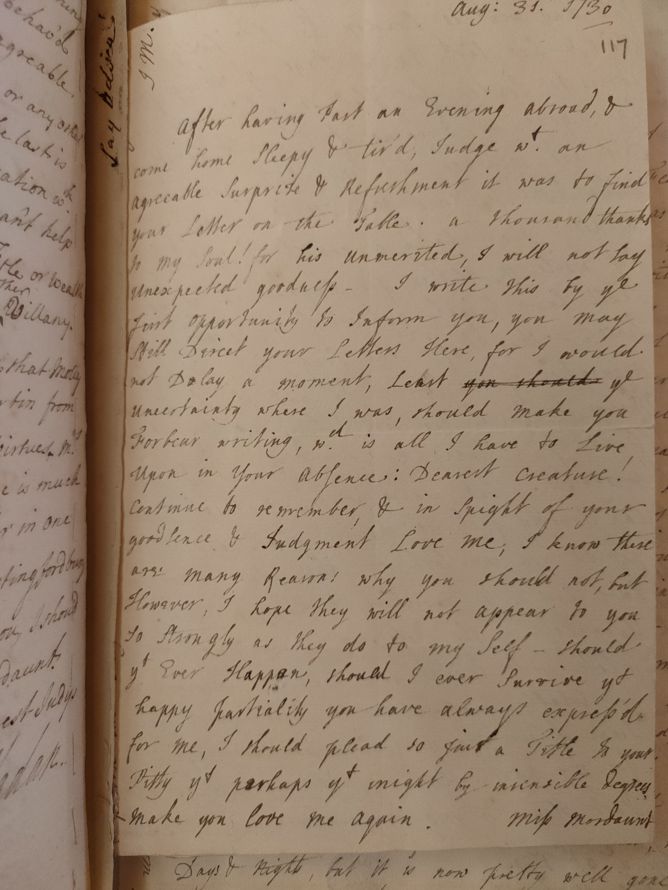 Aug: 31. 1730
117
J M.
Lay
After having Past an Evening abroad, &
come home Sleepy & tir'd, Judge wt. an
agreeable Surprise & Refreshment it was to find
your Letter on the Table. a thousand thanks
to my Soul! for his unmerited, I will not Say
unexpected goodness - I write this by ye
first opportunity to Inform you, you may
Still Direct your Letters Here, for I would
not Delay a moment, Least you should ye
uncertainty where I was, should make you
Forbear writing, wch. is all I have to Live
Upon in Your Absence: Dearest Creature!
Continue to remember, & in Spight of your
goodSence & Judgment Love me, I know there
are many Reasons why you should not, but
However, I hope they will not appear to you
So Strongly as they do to my Self - should
yt Ever Happen, should I ever Survive yt
happy Partiality you have always express'd
for me, I should plead so just a Title to your
Pitty yt perhaps yt might by insensible degrees
Make you love me again. Miss Mordaunt
Days & Night, but it is now pretty well gone
behav'd
agreeable.
or any other
he last is
ation wth
can't help
Title or Wealth
Villany.
that Molly
from
Virtues.
e is much
in one
tingfordbury
I should
daunt